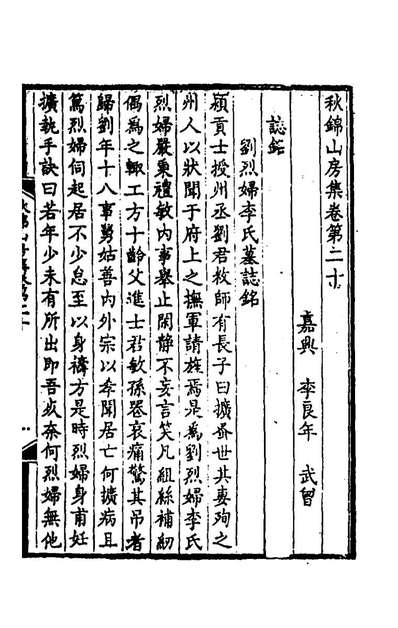 秋錦山房集卷第二十
嘉興 李良年 武曾
誌銘
劉烈婦李氏墓誌銘
潁貢士授州丞劉君教師有長子曰擴夭世其妻殉之
州人以狀聞于府上之撫軍請旌焉是為劉烈婦李氏
烈婦嚴秉禮敏內事舉止閑靜不妄言笑凡組絲補紉
偶為之輒工方十齡父進士君敏孫器哀痛驚其弔者
歸劉年十八事舅姑善內外宗以孝聞居亡何擴病且
篤烈婦伺起居不少怠至以身禱方是時烈婦身甫妊
擴執手訣曰若年少未有所出即吾歿奈何烈婦無他